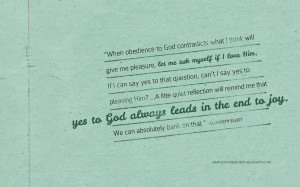 "When obedience to God contradicts what I think will
give me pleasure, let me ask myself if I love Him.
If I can say yes to that question, can't I say yes to
pleasing Him? ...A little quiet reflection will remind me that
yes to God always leads in the end to joy.
We can absolutely bank on that."